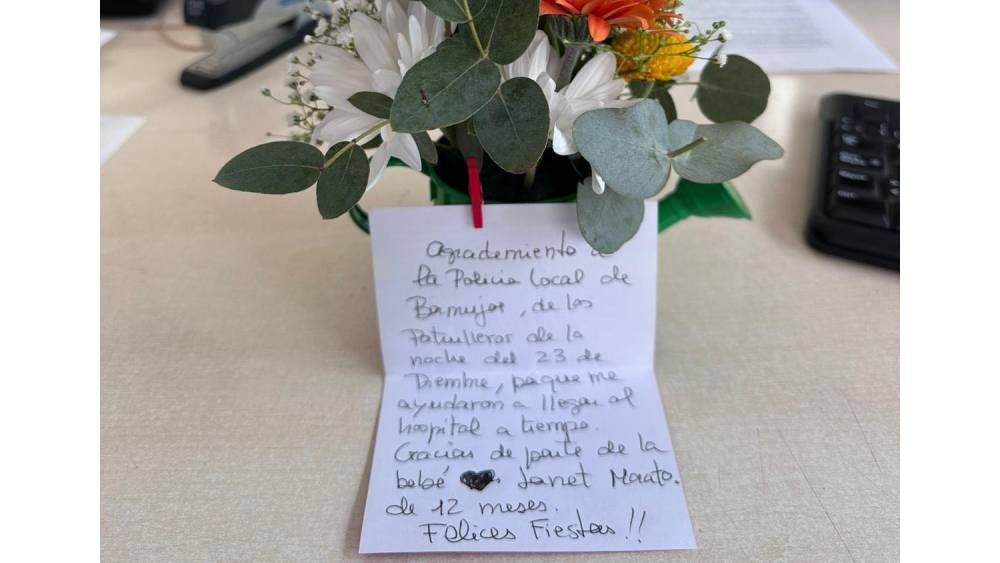 Agrademiento a
la Policia Local de
Bormujos, de los
Patrulleros de la
noche del 23 de
Diembre, paque me
ayudaron a llegar al
hospital a tiempo.
Gracias de parte de la
bebé Janet
de 12 meses.
Felices Fiestas!!